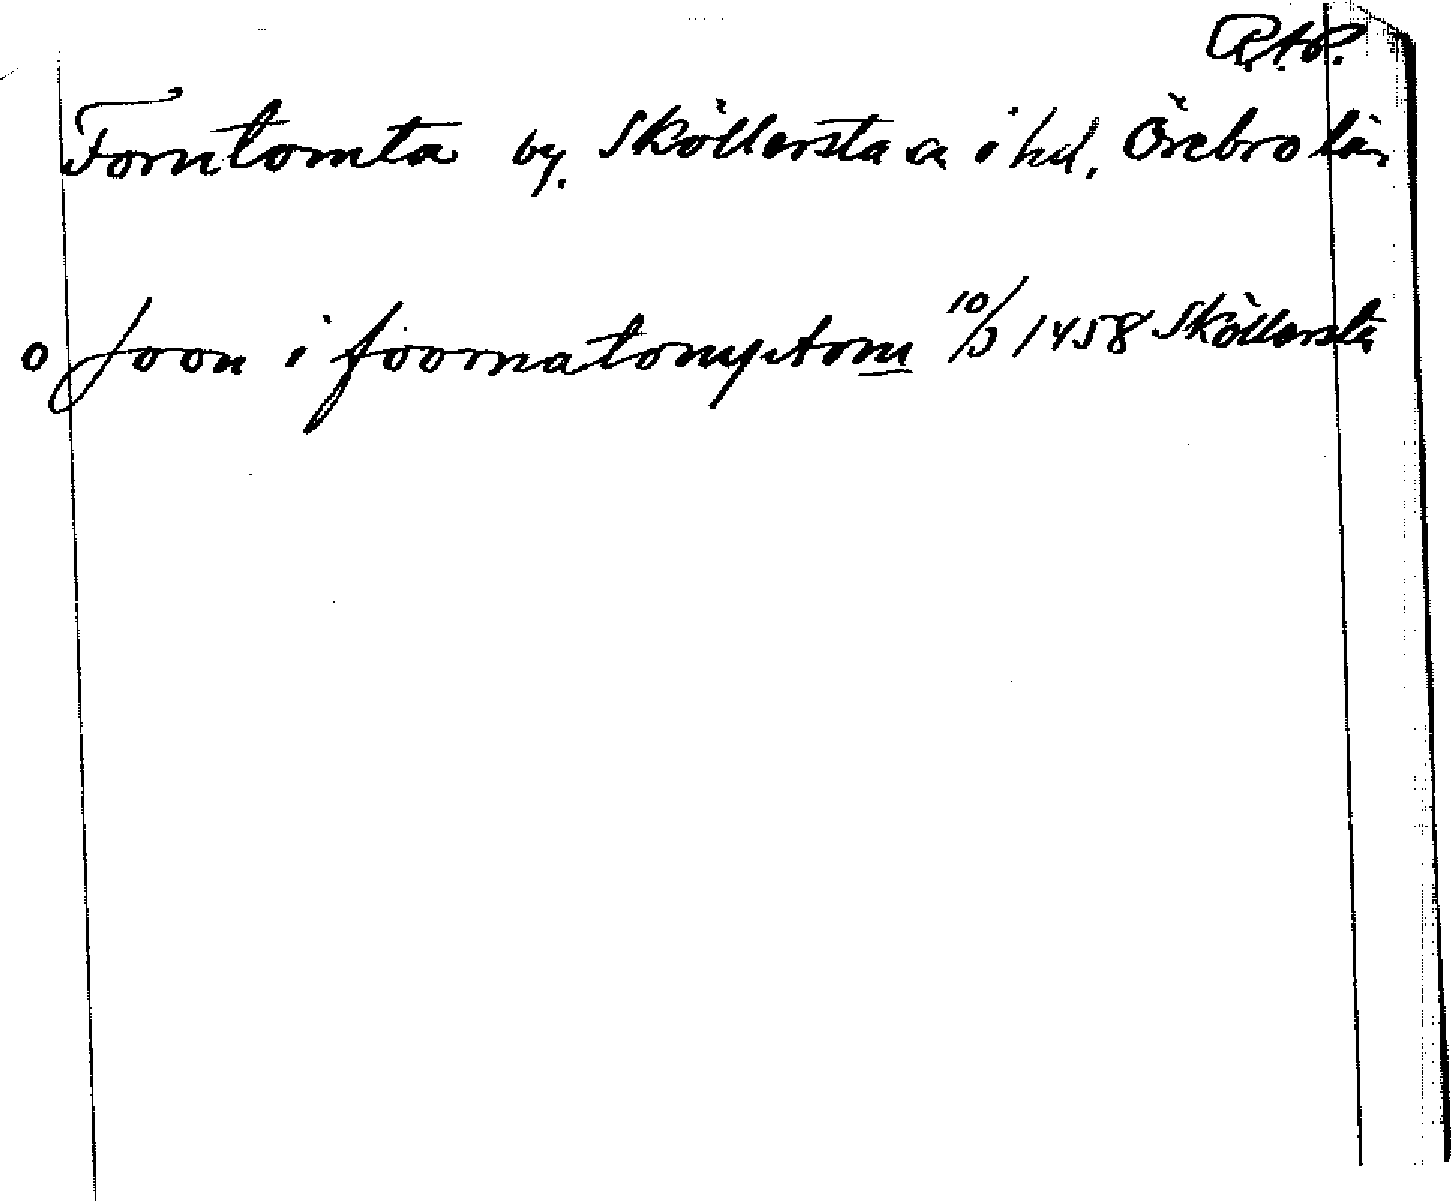 R.A.P.
Forntomta by. Sköllersta a i hd. Örebro län
o Joon i foornatomptom 10/3 1458 Sköllersta